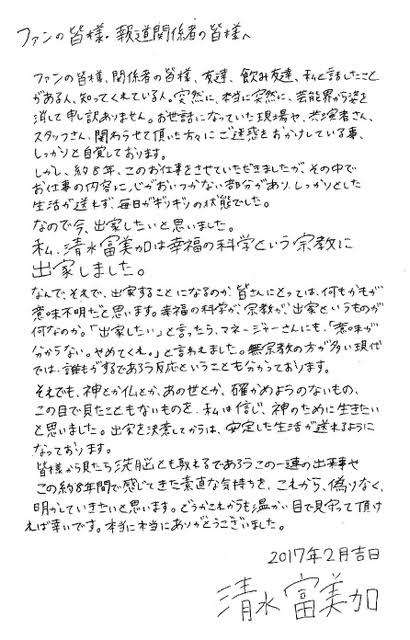 ファンの皆様・報道関係者の皆様へ
ファンの皆様、関係者の皆様、友達、飲み友達、私と話したこと
がある人、知ってくれている人。突然に、本当に突然に、芸能界から姿を
消して申し訳ありません。お世話になっていた現場や、共演者さん、
スタッフさん、関わらせて頂いた方々にご迷惑をおかけしている事、
しっかりと自覚しております。
しかし、約8年、このお仕事をさせていただきましたが、その中で
お仕事の内容に心がおいつかない部分があり、しっかりとした
生活が送れず、毎日がギリギリの状態でした。
なので今、出家したいと思いました。
私、清水富美加は幸福の科学という宗教に
出家しました。
なんで、それで、出家することになるのか、皆さんにとっては、何もかもが
意味不明だと思います。幸福の科学が、宗教が、出家というものが
何なのか。「出家したい」と言ったら、マネージャーさんにも、「意味が
分からない。やめてくれ。」と言われました。無宗教の方が多い現代
では、誰もがするであろう反応ということも分かっております。
それでも、神とか仏とか、あの世とか、確かめようのないもの、
この目で見たこともないものを、私は信じ、神のために生きたい
と思いました。出家を決意してからは、安定した生活が送れるように
なっております。
皆様から見たら洗脳とも取れるであろうこの一連の出来事や
この約8年間で感じてきた素直な気持ちを、これから、偽りなく、
明かしていきたいと思います。どうかこれからも温かい目で見守って頂け
れば幸いです。本当に本当にありがとうございました。
2017年2月吉日
清水富美加